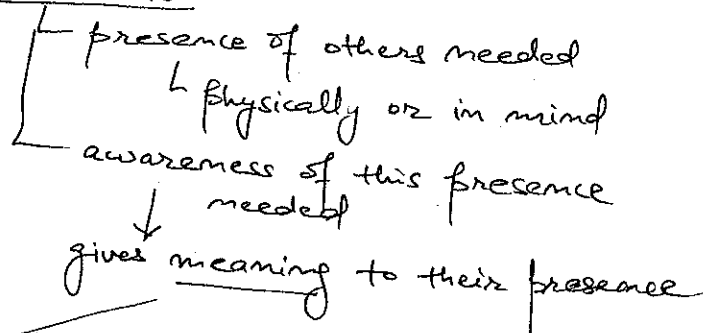 presence of others needed
physically or in mind
awareness of this presence
needed
gives meaning to their presence